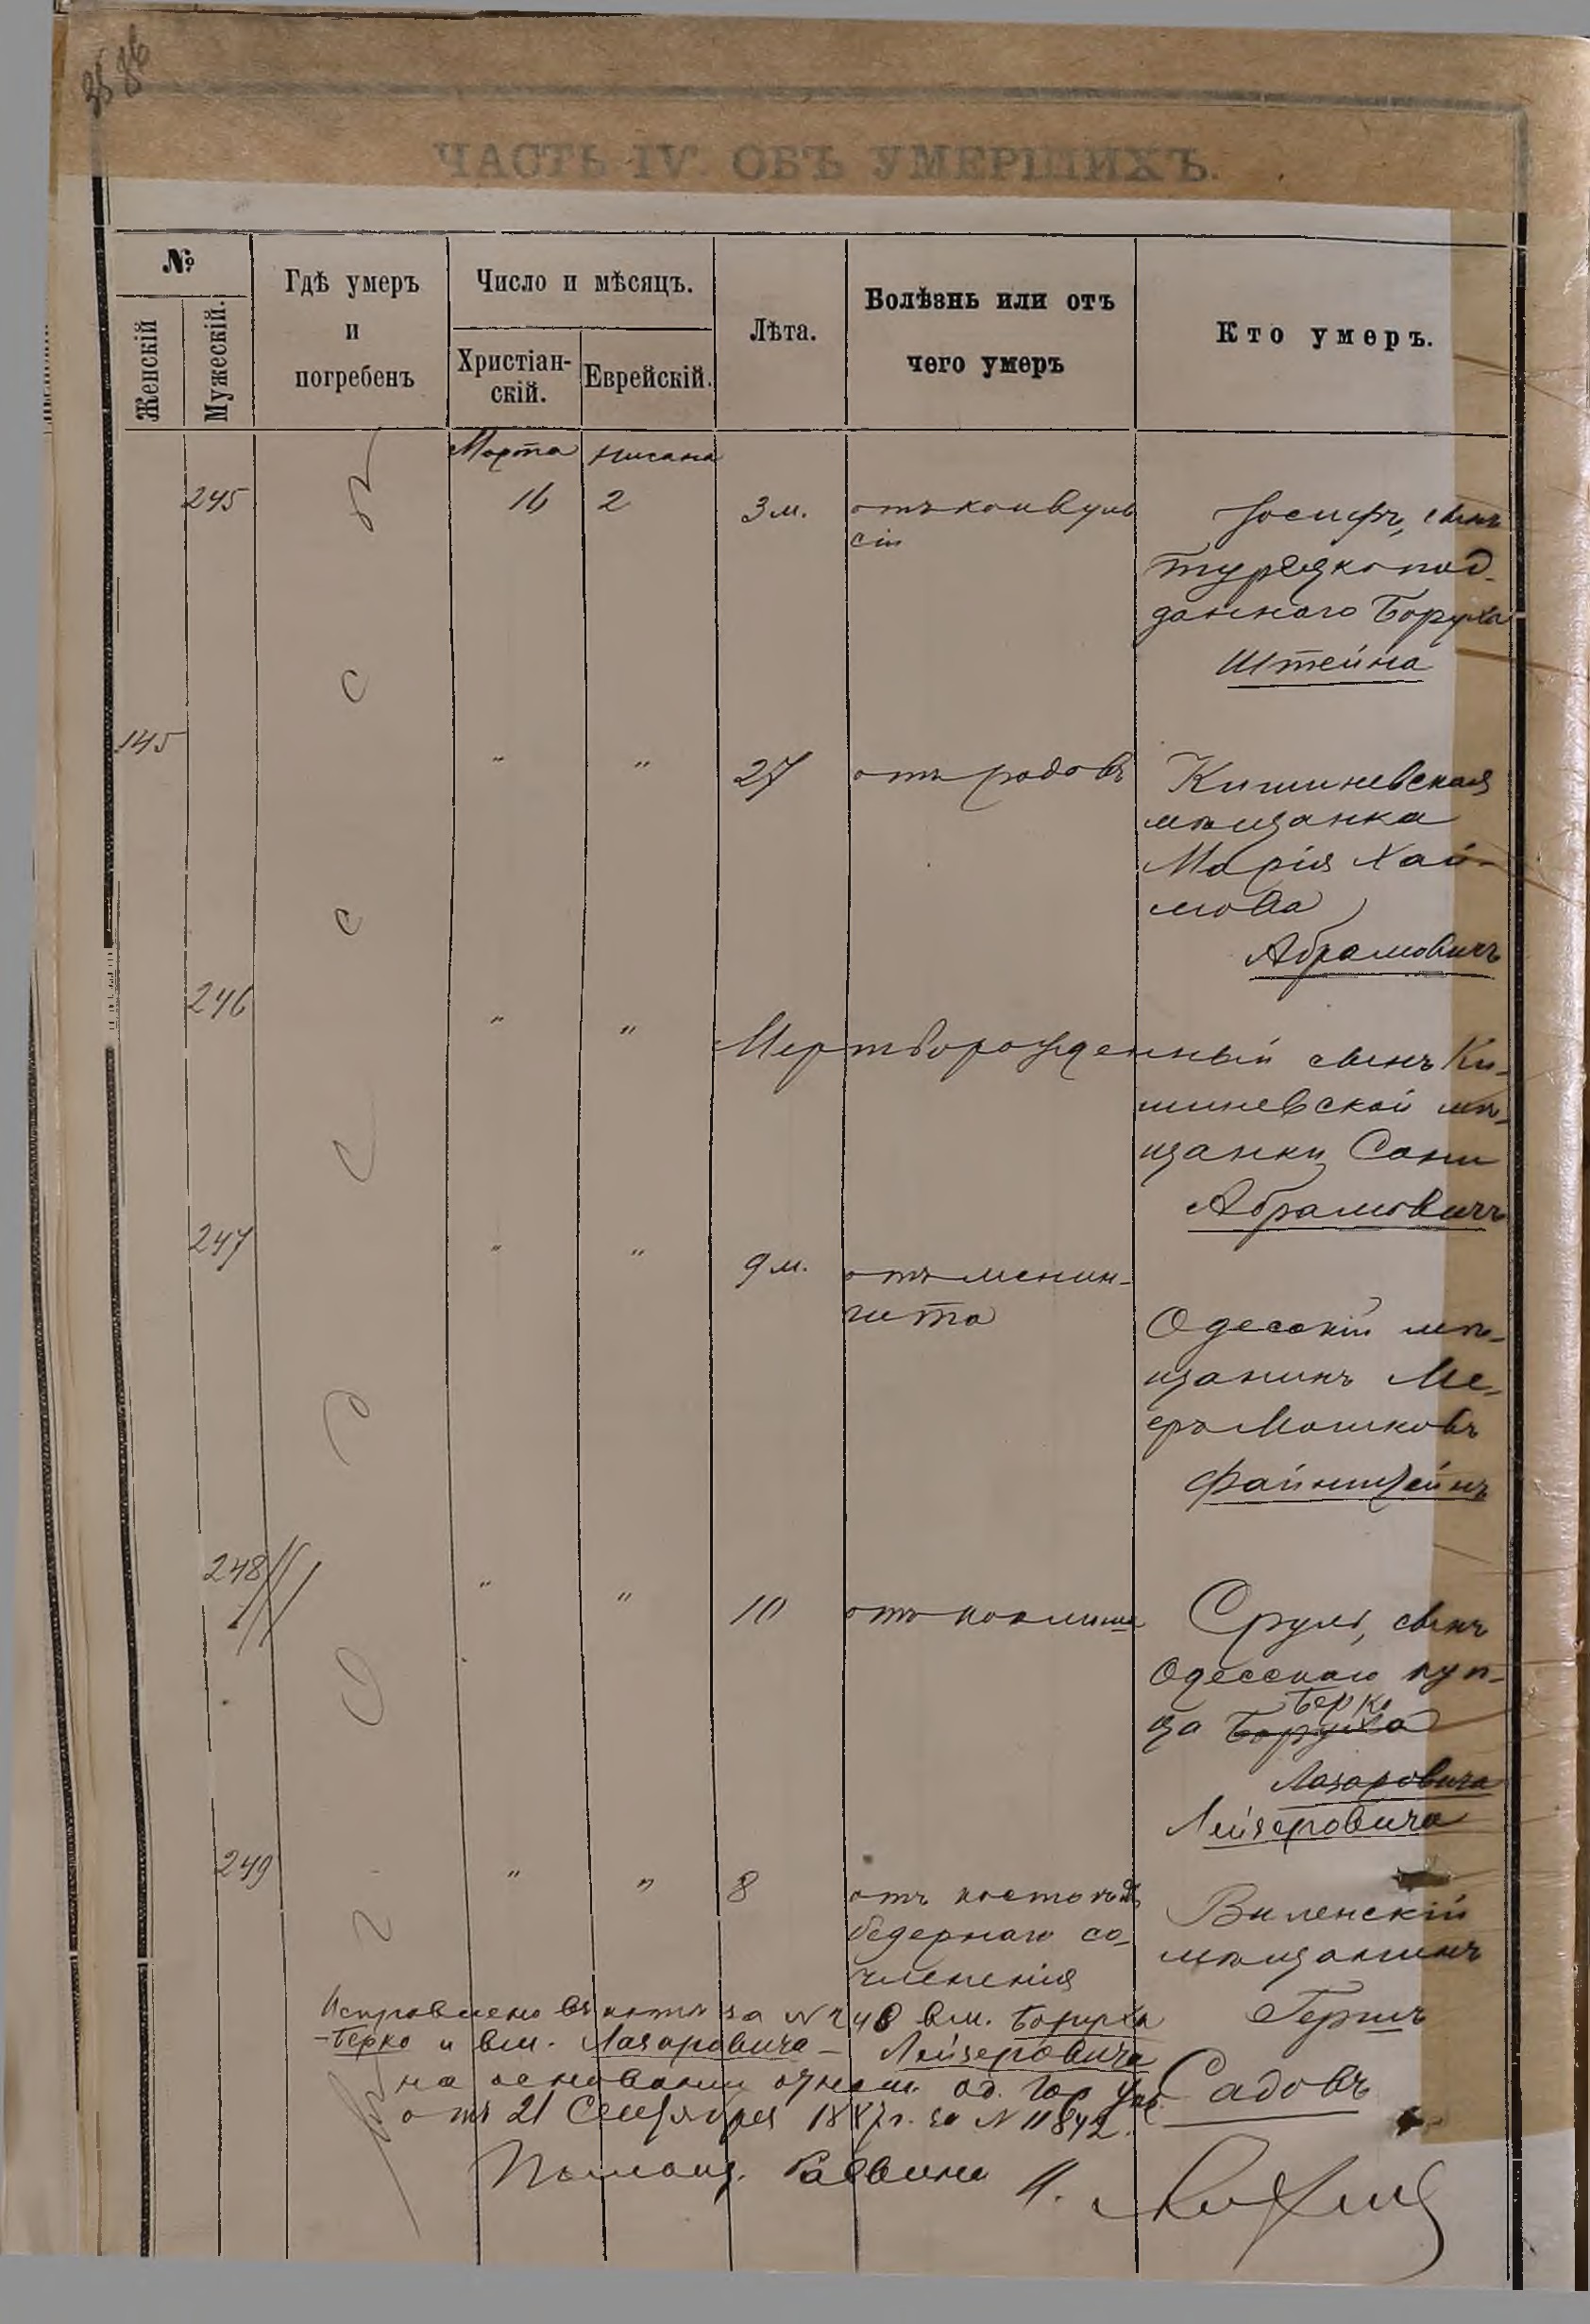 35 36
ЧАСТЬ IV. ОБЪ УМЕРШИХЪ.
№
Женскій
Мужескій.
Гдѣ умеръ
и
погребенъ
Число и мѣсяцъ.
Христіан-
скій.
Еврейскій.
Лѣта.
Болѣзнь или отъ
чего умеръ
Кто умеръ.
Марта нисана
245 16 2 3 м. отъ конвуль
сіи
Іосифъ, сынъ
турецкопод-
даннаго Боруха
Штейна
145 " " 27 отъ родовъ
Кишиневская
мѣщанка
Марія Хай-
мова
Абрамовичъ
246 " " Мертворожденный сынъ Ки-
шиневской мѣ-
щанки Сони
Абрамовичъ
247 " " 9 м. отъ менин-
гита
Одесскій мѣ-
щанинъ Ме-
еръ Мошковъ
Файнштейнъ
248 " " 10 отъ
Сруль, сынъ
Одесскаго куп-
Берко
ца Боруха
Лазаровича
Лейзеровича
249 " " 8 отъ костоѣда
бедернаго со-
члененія
Виленскій
мѣщанинъ
Гершъ
Садовъ
Исправлено въ актѣ за № 248 вм. Боруха
-Берко и вм. Лазаровича - Лейзеровича
на основаніи отнош. од. Гор. Упр.
отъ 21 Сентября 1887 г. за № 11842.
Помощ. Раввина